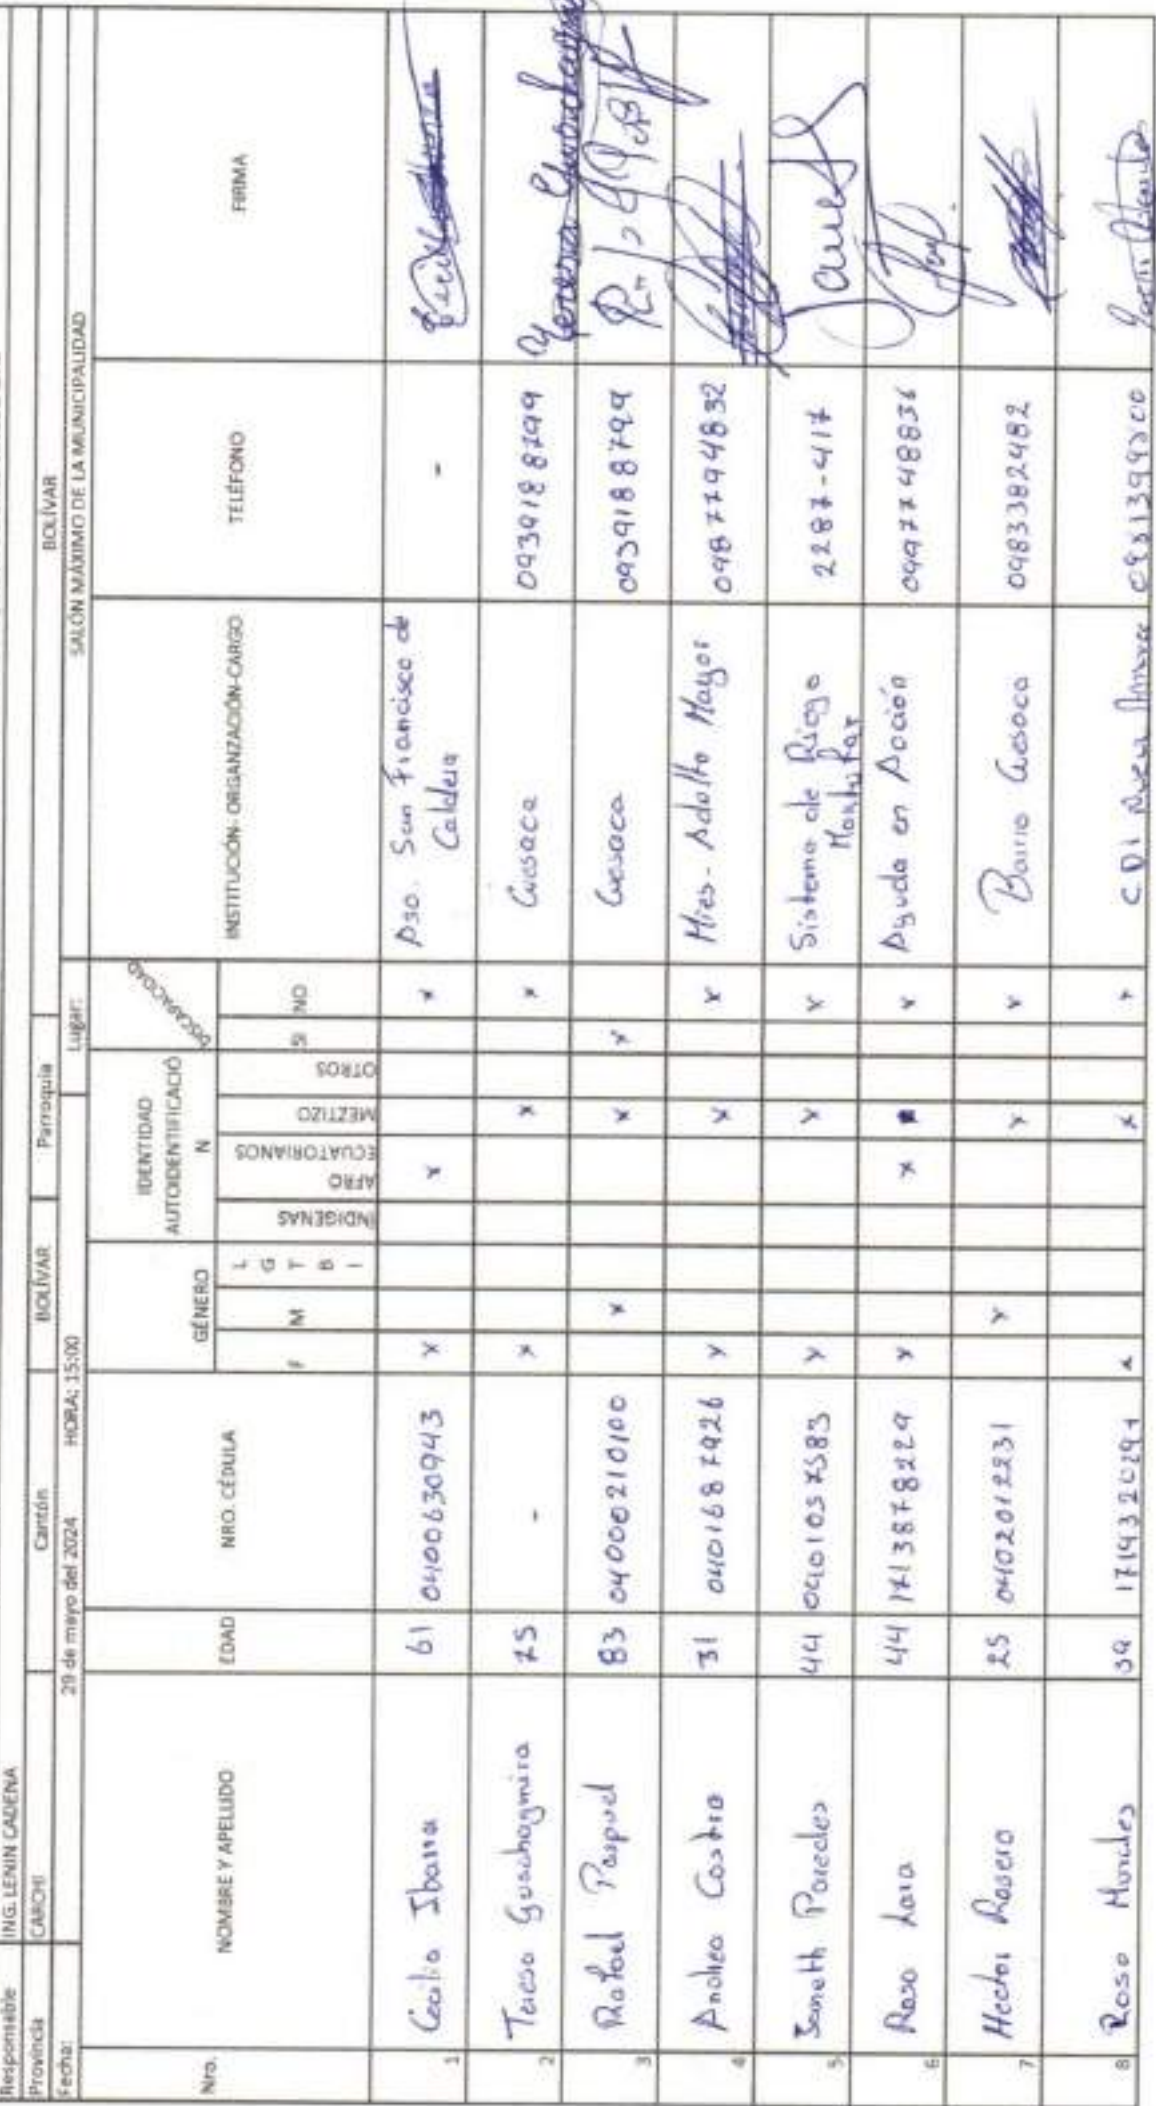 Responsable ING. LENIN CADENA
Provincia CARCHI Cantón BOLÍVAR Parroquia BOLÍVAR
Fecha: 29 de mayo del 2024 HORA: 15:00 Lugar: SALÓN MÁXIMO DE LA MUNICIPALIDAD
Nro. NOMBRE Y APELLIDO EDAD NRO. CÉDULA GÉNERO IDENTIDAD AUTOIDENTIFICACIÓ N DISCAPACIDAD INSTITUCIÓN- ORGANZACIÓN-CARGO TELÉFONO FIRMA
F M L G T B I INDIGENAS AFRO ECUATORIANOS MEZTIZO OTROS SI NO
1 Cecilia Ibarra 61 0400630943 x x x San Francisco de Caldera -
2 Teresa Guachagmira 75 - x x x Cuesaca 0939188799
3 Rafael Paspuel 83 04000210100 x x x Cuesaca 0939188799
4 Andrea Castro 31 0401687926 x x x Mies - Adulto Mayor 0987794832
5 Janeth Paredes 44 0401037583 x x x Sistema de Riego Montufar 2287-417
6 Rosa Lara 44 1713878229 x x x Ayuda en Acción 0997748836
7 Hector Rosero 25 0402012231 x x x Barrio Cuesaca 0983382482
8 Rosa Morales 39 x x x CDI